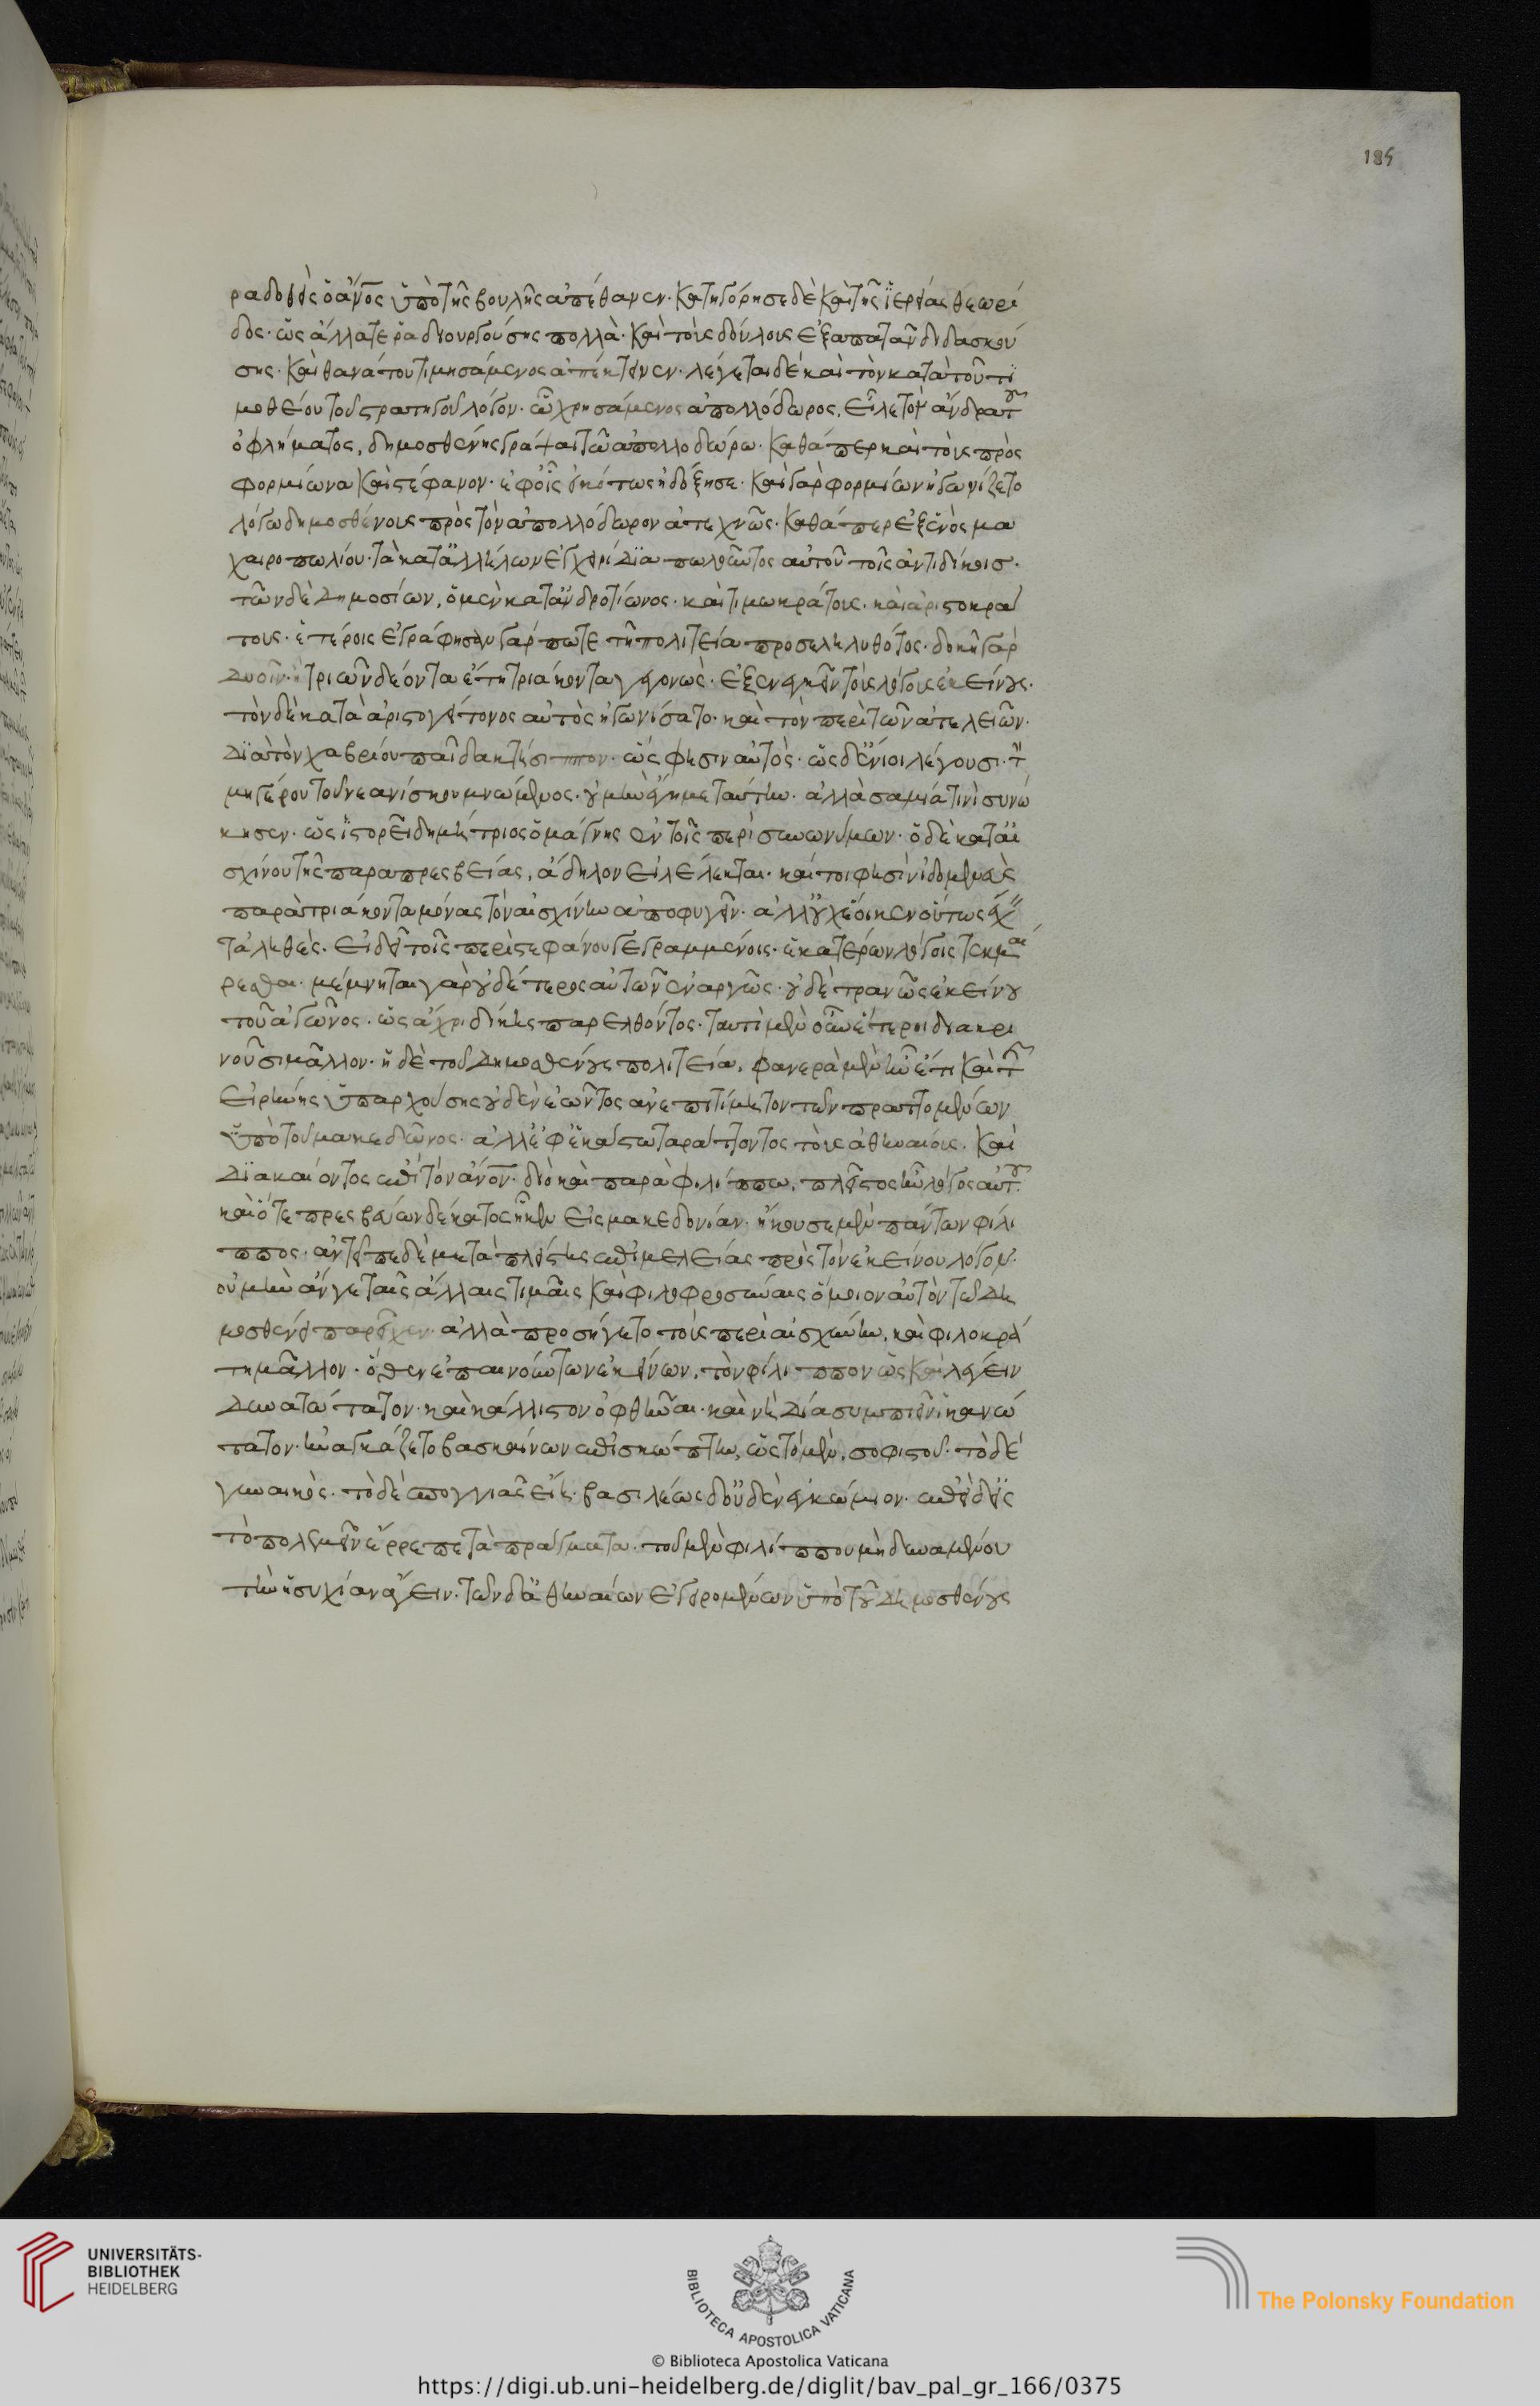 185
ραδοθεὶς ὁ ἄνος ὑπὸ τῆς βουλῆς ἀπέθανεν· κατηγόρησε δὲ καὶ τῆς ἱερείας θεωρί
δος· ὡς ἄλλα τε ῥαδιουργούσης πολλὰ· καὶ τοὺς δούλους ἐξαπατᾶν διδασκού
σης· καὶ θανάτου τιμησάμενος ἀπέκτεινεν· λέγεται δὲ καὶ τὸν κατὰ τοῦ τι
μοθείου τοῦ στρατηγοῦ λόγον· ὧ χρησάμενος ἀπολλόδωρος, εἷλε τὸν ἄνδρα τοῦ
ὀφλήματος, δημοσθένης γράψαι τῶ ἀπολλοδώρω· καθάπερ καὶ τοὺς πρὸς
φορμίωνα καὶ στέφανον· ἐφ' οἷς εἰκότως ἠδόξησε· καὶ γὰρ φορμίων ἠγωνίζετο
λόγω δημοσθένους πρὸς τὸν ἀπολλόδωρον ἀτεχνῶς· καθάπερ ἐξ ἑνὸς μα
χαιροπωλίου· τὰ κατ' ἀλλήλων ἐγχειρίδια πωλοῦντος αὐτοῦ τοῖς ἀντιδίκοις·
τῶν δὲ δημοσίων, ὁ μὲν κατ' ἀνδροτίωνος· καὶ τιμωκράτους· καὶ ἀριστοκρά
τους· ἑτέροις ἐγράφησαν γὰρ πωτε τῆ πολιτεία προσεληλυθότος· δοκῆ γὰρ
δυοῖν· ἢ τριῶν δέοντα ἔτη τριάκοντα γεγονὼς· ἐξενεγκεῖν τοὺς λόγους ἐκείνους·
τὸν δὲ κατὰ ἀριστογείτονος αὐτὸς ἠγωνίσατο· καὶ τὸν περὶ τῶν ἀτελειῶν·
διὰ τὸν χαβρίου παῖδα κτήσιππον· ὥς φησιν αὐτὸς· ὡς δ' ἔνιοι λέγουσι· τὴν
μητέρου τοῦ νεανίσκου μνώμενος· οὐ μὴν ἔγημε ταύτην· ἀλλὰ σαμία τινὶ συνώ
κησεν· ὡς ἱστορεῖ δημήτριος ὁ μάγνης ἐν τοῖς περὶ συνωνύμων· ὁ δὲ κατ' αἰ
σχίνου τῆς παραπρεσβείας, ἄδηλον εἰ λέλεκται· καίτοι φησὶν ἰδομενεὺς
παρὰ τριάκοντα μόνας τὸν αἰσχίνην ἀποφυγεῖν· ἀλλ' οὐχ' ἔοικεν οὕτως ἔχειν
τἀληθὲς· εἰ δεῖ τοῖς περὶ στεφάνου γεγραμμένοις· ἑκατέρων λόγοις τεκμαί
ρεσθαι· μέμνηται γὰρ οὐδέτερος αὐτῶν ἐναργῶς· οὐδὲ τρανῶς ἐκείνου
τοῦ ἀγῶνος· ὡς ἄχρι δίκης παρελθόντος· ταυτὶ μὲν οὖν ἕτεροι διακρι
νοῦσι μᾶλλον· ἡ δὲ τοῦ δημοσθένους πολιτεία, φανερὰ μὲν ἦν ἔτι καὶ τῆς
εἰρήνης ὑπαρχούσης οὐδὲν ἐῶντος ἀνεπιτίμητον τῶν πραττομένων
ὑπὸ τοῦ μακεδῶνος· ἀλλ' ἐφ' ἑκάστω ταράττοντος τοὺς ἀθηναίους· καὶ
διακαίοντος ἐπὶ τὸν ἄνον· διὸ καὶ παρὰ φιλίππω, πλεῖστος ἦν λόγος αὐτοῦ
καὶ ὅτε πρεσβεύων δέκατος ἧκεν εἰς μακεδονίαν· ἤκουσε μὲν πάντων φίλι
ππος· ἀντεῖπε δὲ μετὰ πλείστης ἐπιμελείας πρὸς τὸν ἐκείνου λόγον·
οὐ μὴν ἔν γε ταῖς ἄλλαις τιμαῖς καὶ φιλοφροσύναις ὅμοιον αὐτὸν τῶ δη
μοσθένει παρεῖχεν· ἀλλὰ προσήγετο τοὺς περὶ αἰσχίνην, καὶ φιλοκρά
τη μᾶλλον· ὅθεν ἐπαινούντων ἐκείνων, τὸν φίλιππον ὡς καὶ λέγειν
δυνατώτατον· καὶ κάλλιστον ὀφθῆναι· καὶ νὴ δία συμπιεῖν ἱκανώ
τατον· ἠναγκάζετο βασκαίνων ἐπισκώπτειν, ὡς τὸ μὲν, σοφιστοῦ· τὸ δὲ
γυναικὸς· τὸ δὲ σπογγιᾶς εἴη· βασιλέως δ' οὐδὲν ἐγκώμιον· ἐπεὶ δ' εἰς
τὸ πολεμεῖν ἔρρεπε τὰ πράγματα· τοῦ μὲν φιλίππου μὴ δυναμένου
τὴν ἡσυχίαν ἄγειν· τῶν δ' ἀθηναίων ἐγειρομένων ὑπὸ τοῦ δημοσθένους
UNIVERSITÄTS-
BIBLIOTHEK
HEIDELBERG
BIBLIOTECA APOSTOLICA VATICANA
The Polonsky Foundation
© Biblioteca Apostolica Vaticana
https://digi.ub.uni-heidelberg.de/diglit/bav_pal_gr_166/0375